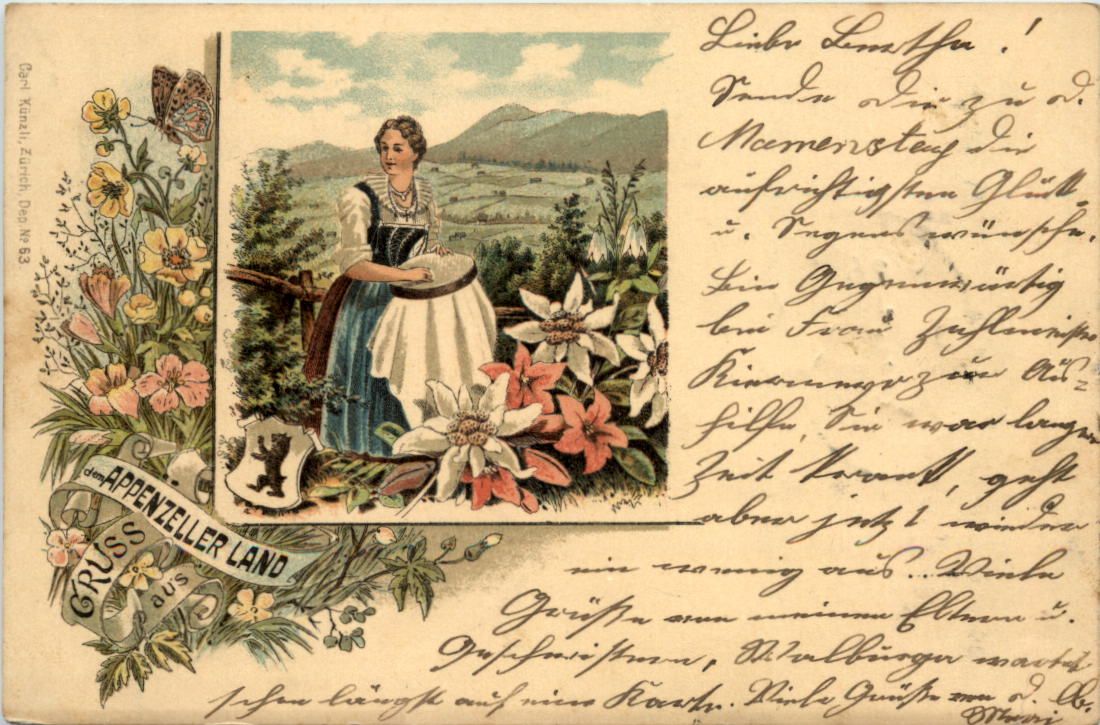 Carl Künzli, Zürich, Dep. Nº 63.
GRUSS
aus
dem APPENZELLER LAND
Liebe Bertha!
Sende dir zu d.
Namenstag die
aufrichtigsten Glück-
u. Segenswünsche.
Bin Gegenwärtig
bei Frau Zahlmeister
zur Aus-
hilfe, Sie war lange
Zeit krank, geht
aber jetzt wieder
ein wenig aus. Viele
Grüße von meinen Eltern u.
Geschwistern, Walburga wartet
schon längst auf eine Karte. Viele Grüße von d. Ob.
Mari